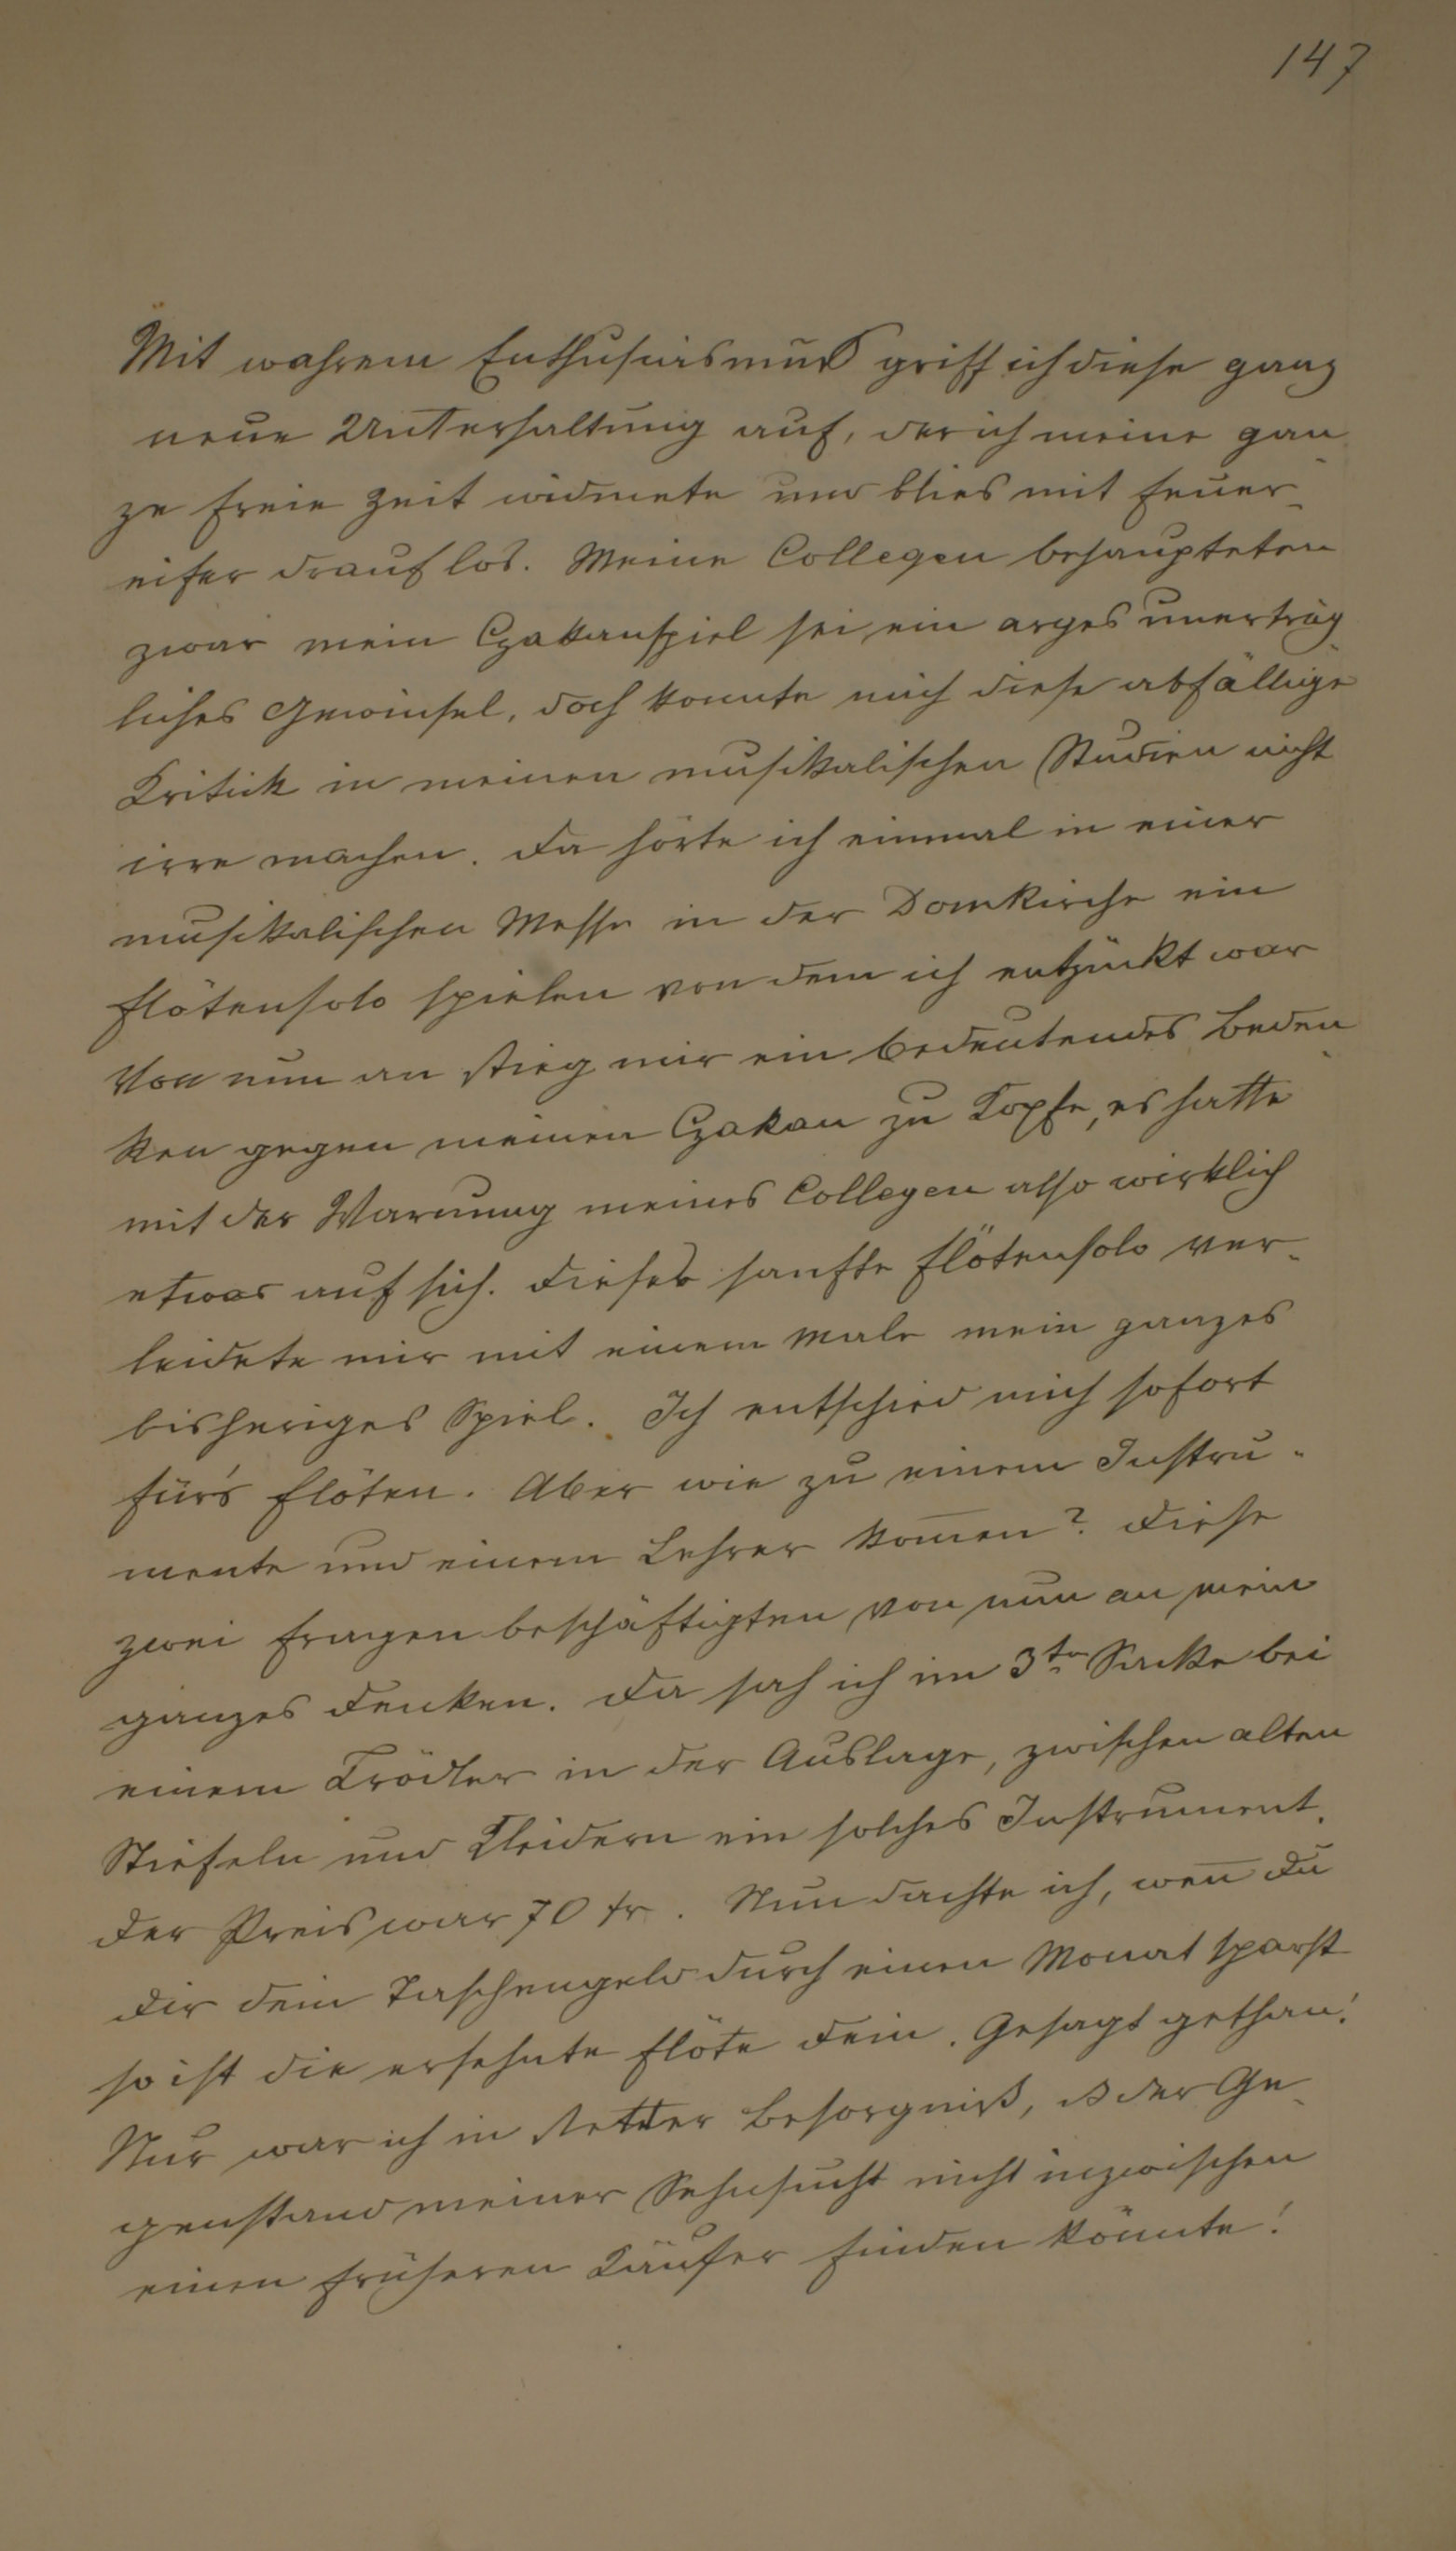 147
Mit wahrem Enthusiasmus griff ich diese ganz
neue Unterhaltung auf, der ich meine gan-
ze freie Zeit widmete und blies mit Feuer-
eifer drauf los. Meine Collegen behaupteten
zwar mein Czakanspiel sei ein arges unerträg-
liches Gewinsel, doch konnte mich diese abfällige
Kritik in meinen musikalischen Studien nicht
irre machen. Da hörte ich einmal in einer
musikalischen Messe in der Domkirche ein
Flötensolo spielen von dem ich entzückt war
Von nun an stieg mir ein bedeutendes Beden-
ken gegen meinen Czakan zu Kopfe, es hatte
mit der Warnung meines Collegen also wirklich
etwas auf sich. Dieses sanfte Flötensolo ver-
leidete mir mit einem Male mein ganzes
bisheriges Spiel. Ich entschied mich sofort
für's Flöten. Aber wie zu einem Instru-
mente und einem Lehrer kom̄en? Diese
zwei Fragen beschäftigten von nun an mein
ganzes Denken. Da sah ich im 3ten Sacke bei
einem Trödler in der Auslage, zwischen alten
Stiefeln und Kleidern ein solches Instrument.
Der Preis war 70 kr. Nun dachte ich, wen̄ Du
Dir dein Taschengeld durch einen Monat sparst
so ist die ersehnte Flöte Dein. Gesagt gethan!
Nur war ich in steter Besorgniß, ß der Ge-
genstand meiner Sehnsucht nicht inzwischen
einen früheren Käufer finden könnte!